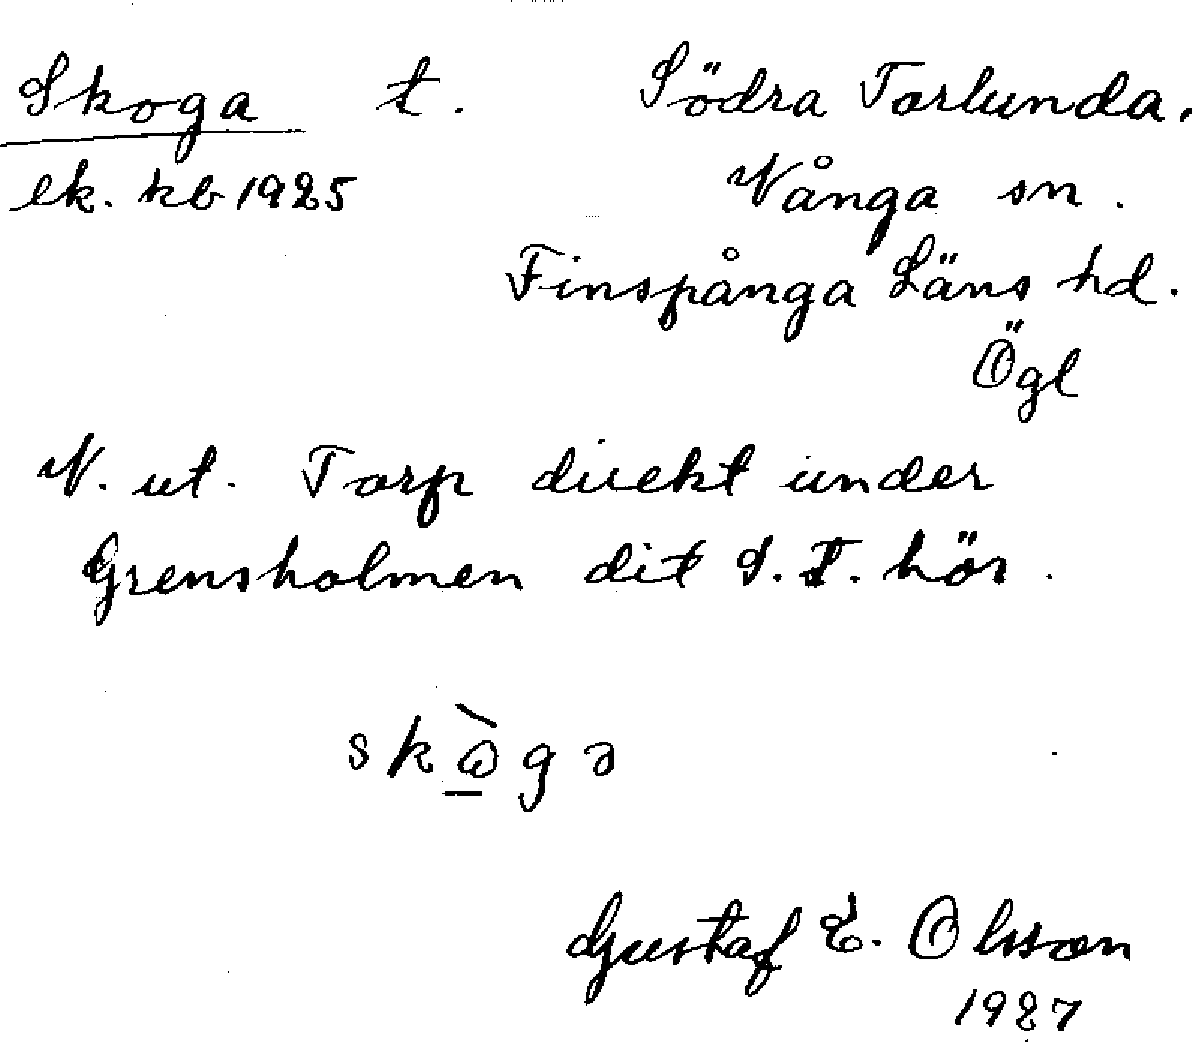 Skoga t. Södra Torlunda,
ek. kb 1925 Vånga sn.
Finspånga Läns hd.
Ögl
N. ut. Torp direkt under
Grensholmen dit S. T. hör.
skògə
Gustaf E. Olsson
1927